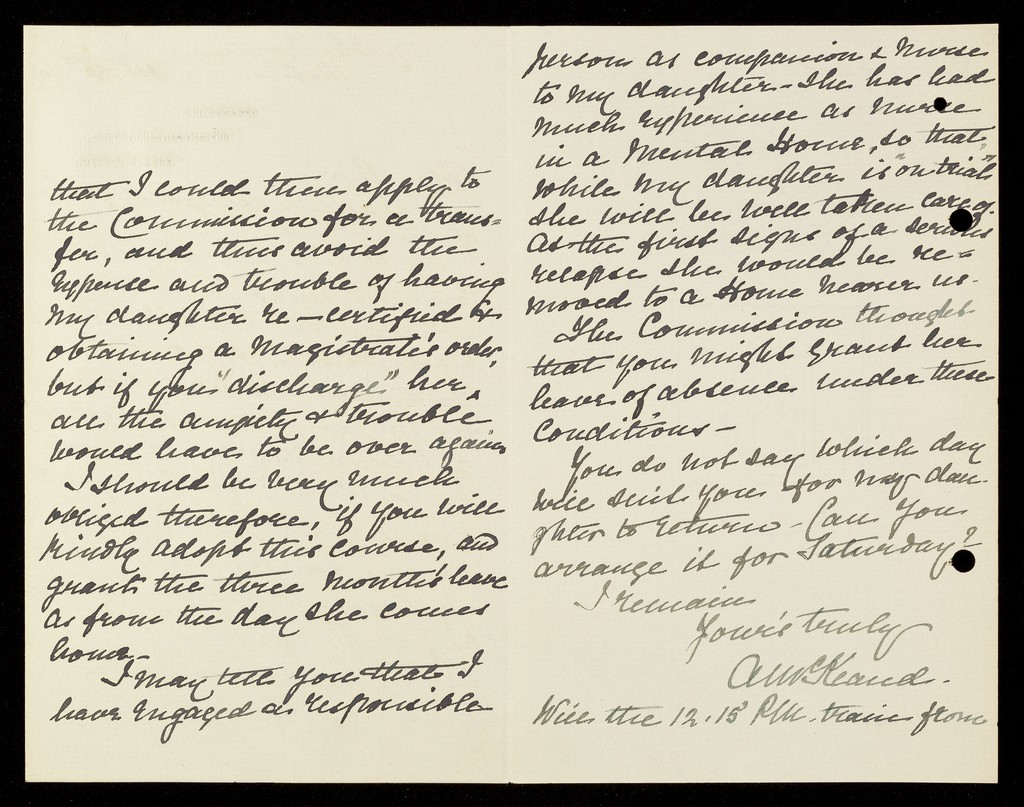 that I could then apply to
the Commission for a trans=
fer, and thus avoid the
expense and trouble of having
my daughter re-certified &
obtaining a Magistrate's order,
but if you "discharge" her,
all the anxiety & trouble
would have to be over again
I should be very much
obliged therefore, if you will
kindly adopt this course, and
grant the three months leave
as from the day she comes
home-
I may tell you that I
have engaged a responsible
person as companion & Nurse
to my daughter - She has had
much experience as nurse
in a Mental Home, so that
while my daughter is "on trial"
she will be well taken care of.
As the first signs of a serious
relapse she would be re=
moved to a Home nearer us.
The Commission thought
that you might grant her
leave of absence under these
conditions -
You do not say which day
will suit you for my dau-
ghter to return - Can you
arrange it for Saturday?
I remain
Your's truly
A McKeand.
Will the 12.15 P.M. train from